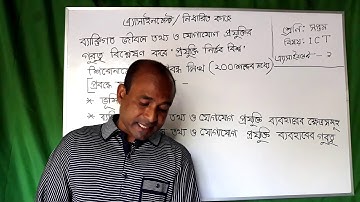 এ্যাসাইনমেন্ট/ নির্ধারিত কাজ
শ্রেনি: সপ্তম
ব্যক্তিগত জীবনে তথ্য ও যোগাযোগ প্রযুক্তির
বিষয়: ICT
গুরুত্ব বিশ্লেষণ করে 'প্রযুক্তি নির্ভর বিশ্ব'
এ্যাসাইনমেন্ট - ১
শিরোনামে প্রবন্ধ লিখ (২০০ শব্দের মধ্যে)
প্রবন্ধে -
* ভূমি
* ব্যক্তি তথ্য ও যোগাযোগ প্রযুক্তি ব্যবহারের ক্ষেত্রসমূহ
* তথ্য ও যোগাযোগ প্রযুক্তি ব্যবহারের গুরুত্ব